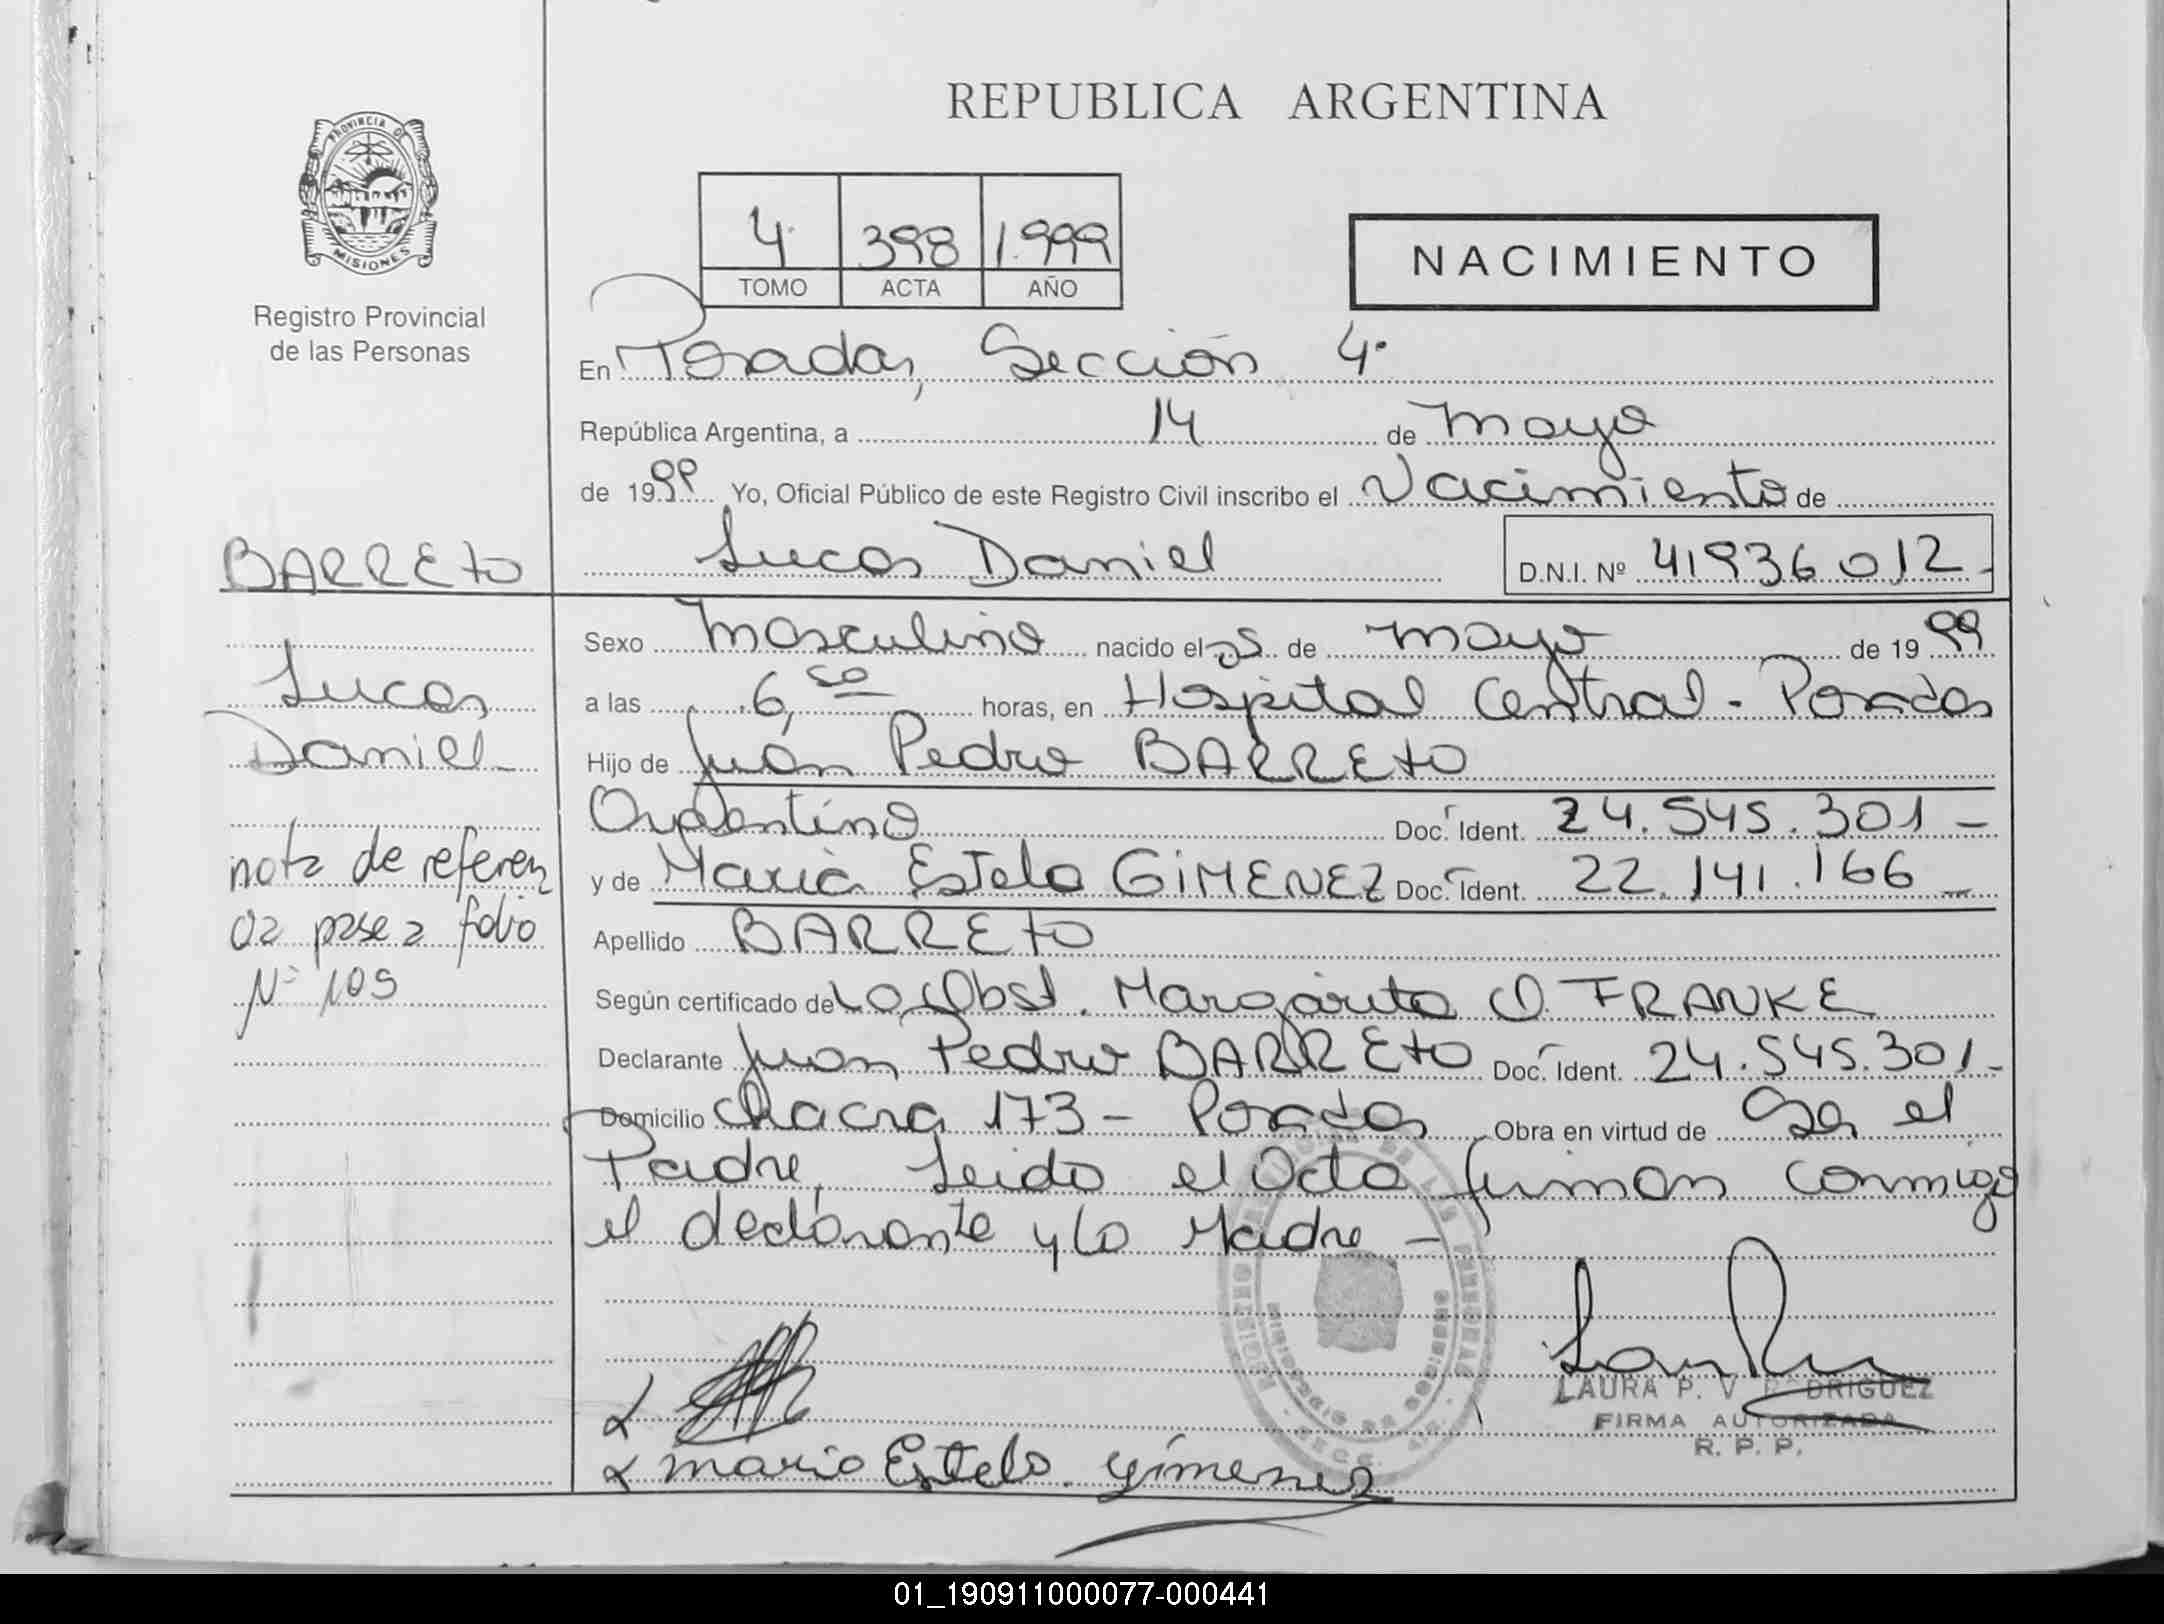 REPUBLICA ARGENTINA
PROVINCIA DE
MISIONES
Registro Provincial
de las Personas
4 398 1.999
TOMO ACTA AÑO
NACIMIENTO
En Posadas, Sección 4º
República Argentina, a 14 de Mayo
de 1999 Yo, Oficial Público de este Registro Civil inscribo el Nacimiento de
Lucas Daniel D.N.I. Nº 41936012-
BARRETO
Lucas
Daniel-
nota de referen
cia pase a folio
Nº 109
Sexo Masculino nacido el 05 de Mayo de 1999
a las 6,50 horas, en Hospital Central - Posadas
Hijo de Juan Pedro BARRETO
Argentino Doc. Ident. 24.545.301-
y de Maria Estela GIMENEZ Doc. Ident. 22.141.166-
Apellido BARRETO
Según certificado de La Obst. Margarita O. FRANKE
Declarante Juan Pedro BARRETO Doc. Ident. 24.545.301-
Domicilio Chacra 173 - Posadas Obra en virtud de Ser el
Padre, Leido el Acta firman conmigo
el declarante y la Madre -
LAURA P. V. RODRIGUEZ
FIRMA AUTORIZADA
R. P. P.
Maria Estela Gimenez
01_190911000077-000441